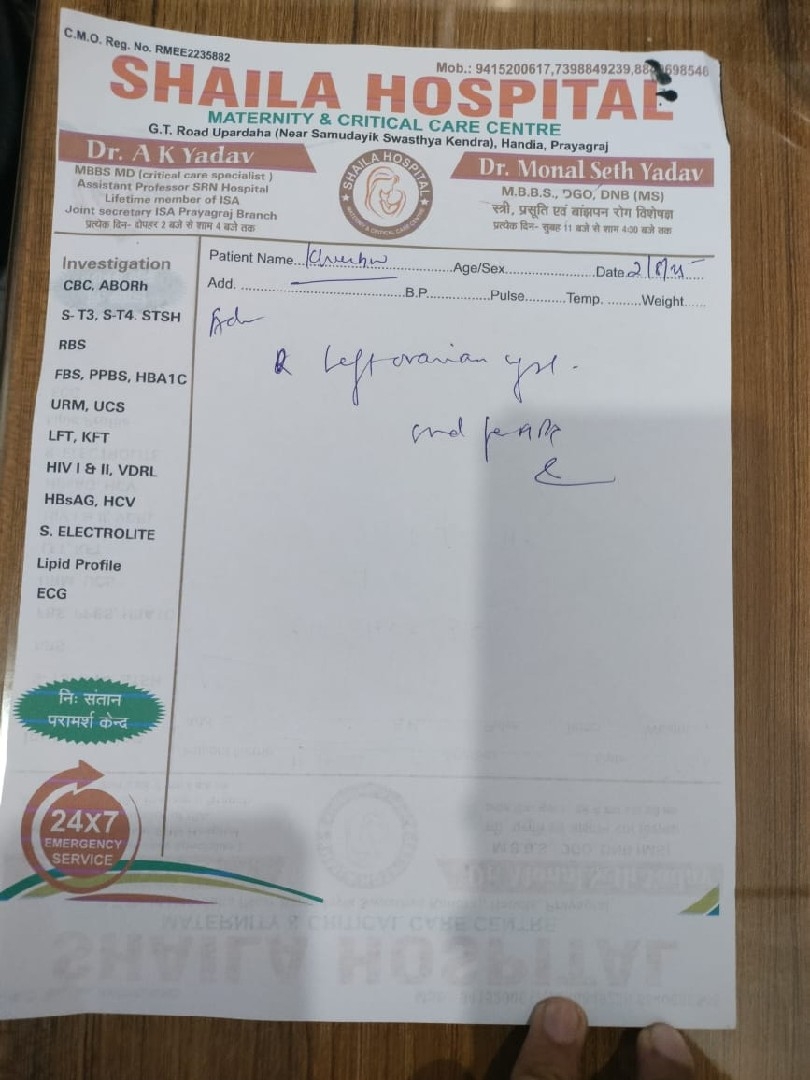 C.M.O. Reg. No. RMEE2235882
Mob.: 9415200617,7398849239,88 698546
SHAILA HOSPITAL
MATERNITY & CRITICAL CARE CENTRE
G.T. Road Upardaha (Near Samudayik Swasthya Kendra), Handia, Prayagraj
Dr. A K Yadav
MBBS MD (critical care specialist )
Assistant Professor SRN Hospital
Lifetime member of ISA
Joint secretary ISA Prayagraj Branch
प्रत्येक दिन- दोपहर 2 बजे से शाम 4 बजे तक
SHAILA HOSPITAL
MATERNITY & CRITICAL CARE CENTRE
Dr. Monal Seth Yadav
M.B.B.S., DGO, DNB (MS)
स्त्री, प्रसूति एवं बांझपन रोग विशेषज्ञ
प्रत्येक दिन- सुबह 11 बजे से शाम 4:00 बजे तक
Patient Name Age/Sex Date 2/8/25
Add. B.P. Pulse Temp. Weight
Investigation
CBC, ABORh
S- T3, S-T4, STSH
RBS
FBS, PPBS, HBA1C
URM, UCS
LFT, KFT
HIV I & II, VDRL
HBsAG, HCV
S. ELECTROLITE
Lipid Profile
ECG
Adv
Left ovarian cyst.
नि: संतान
परामर्श केन्द्र
24X7
EMERGENCY
SERVICE